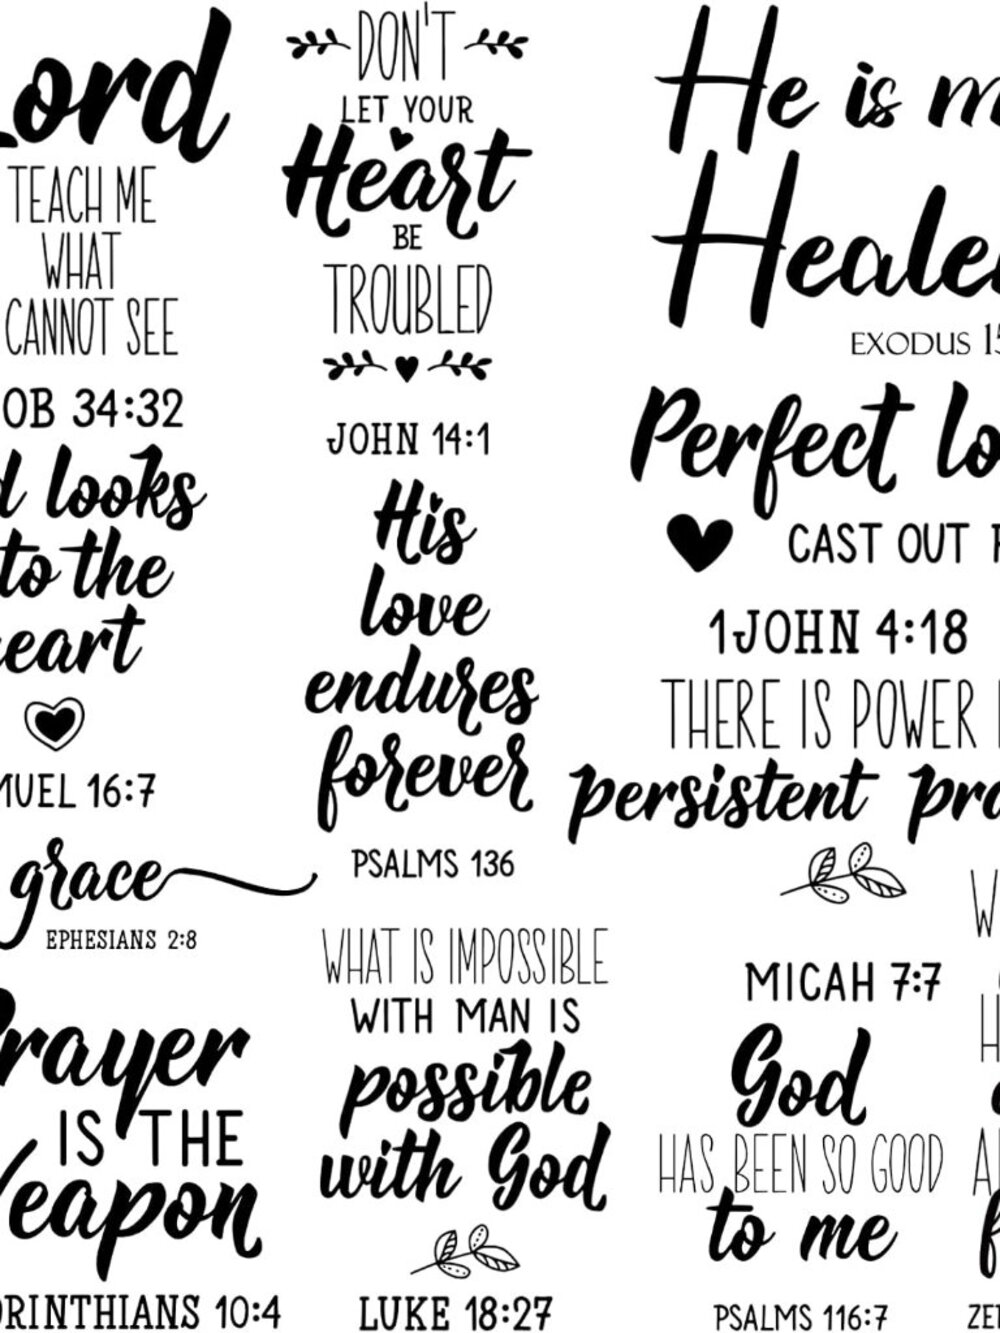 Lord
TEACH ME
WHAT
CANNOT SEE
OB 34:32
looks
to the
eart
MUEL 16:7
grace
EPHESIANS 2:8
Prayer
IS THE
Weapon
ORINTHIANS 10:4
DON'T
LET YOUR
Heart
BE
TROUBLED
JOHN 14:1
His
love
endures
forever
PSALMS 136
WHAT IS IMPOSSIBLE
WITH MAN IS
possible
with God
LUKE 18:27
He is m
Healer
EXODUS 15
Perfect lo
CAST OUT
1 JOHN 4:18
THERE IS POWER
persistent pra
MICAH 7:7
God
HAS BEEN SO GOOD
to me
PSALMS 116:7
W
H
ZE